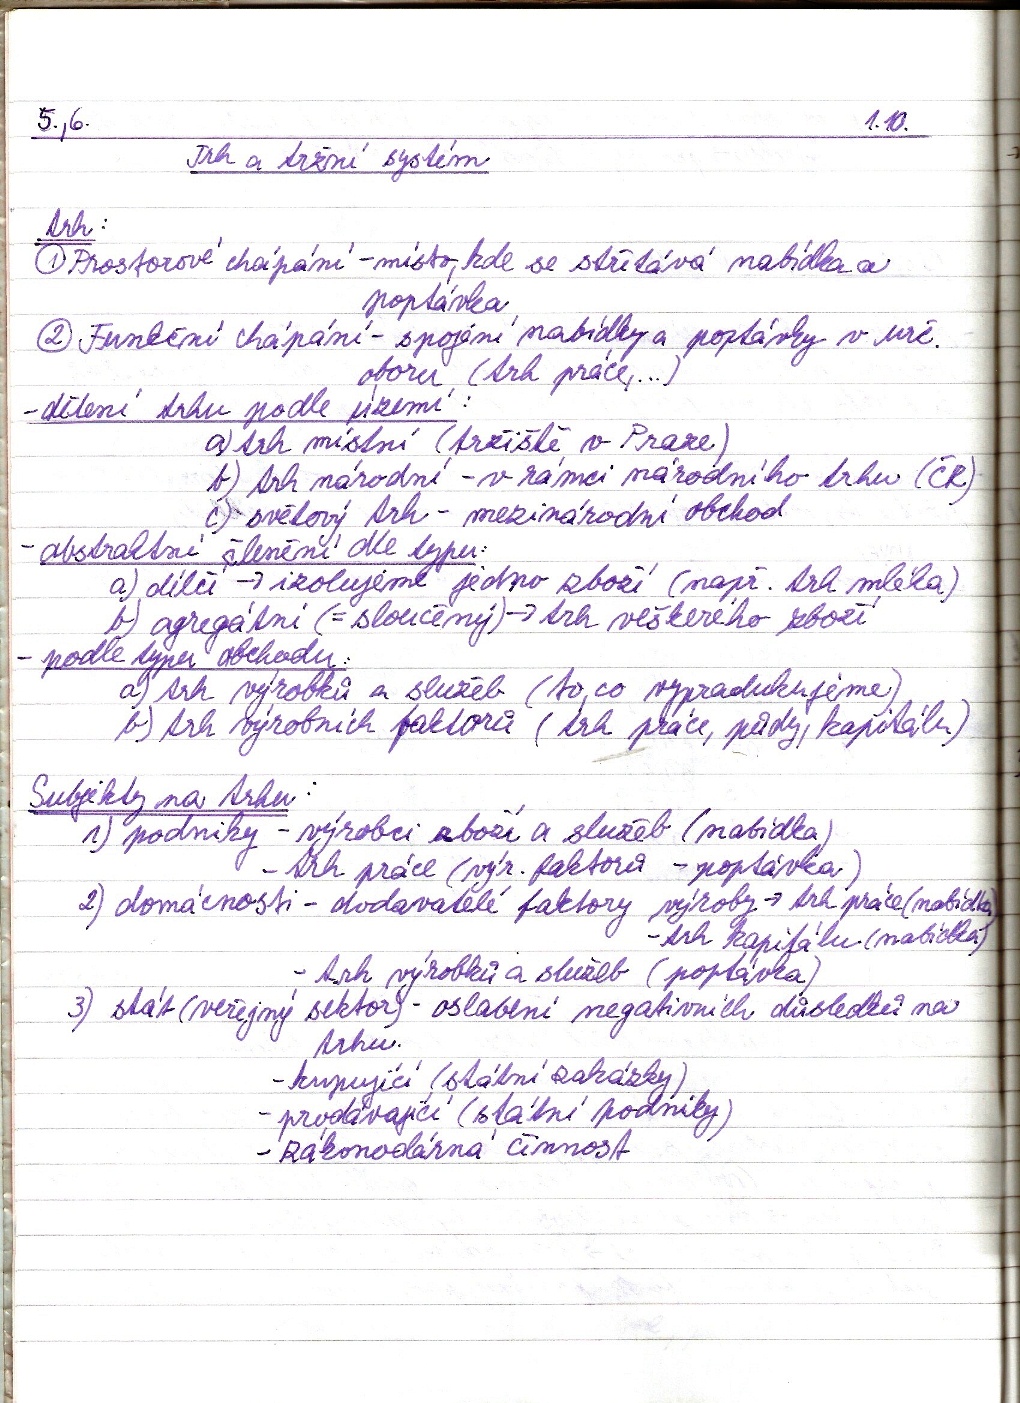 5.,6. 1.10.
Trh a tržní systém
trh:
① Prostorové chápání - místo, kde se střítává nabídka a
poptávka
② Funkční chápání - spojení nabídky a poptávky v urč.
oboru (trh práce,...)
- dělení trhu podle území:
a) trh místní (tržiště v Praze)
b) trh národní - v rámci národního trhu (ČR)
c) světový trh - mezinárodní obchod
- abstraktní členění dle typu:
a) dílčí → izolujeme jedno zboží (např. trh mléka)
b) agregátní (= sloučený) → trh veškerého zboží
- podle typu obchodu:
a) trh výrobků a služeb (to, co vyprodukujeme)
b) trh výrobních faktorů (trh práce, půdy, kapitálu)
Subjekty na trhu:
1) podniky - výrobci zboží a služeb (nabídka)
- trh práce (výr. faktorů - poptávka)
2) domácnosti - dodavatelé faktory výroby → trh práce (nabídka)
- trh kapitálu (nabídka)
- trh výrobků a služeb (poptávka)
3) stát (veřejný sektor) - oslabení negativních důsledků na
trhu.
- kupující (státní zakázky)
- prodávající (státní podniky)
- zákonodárná činnost